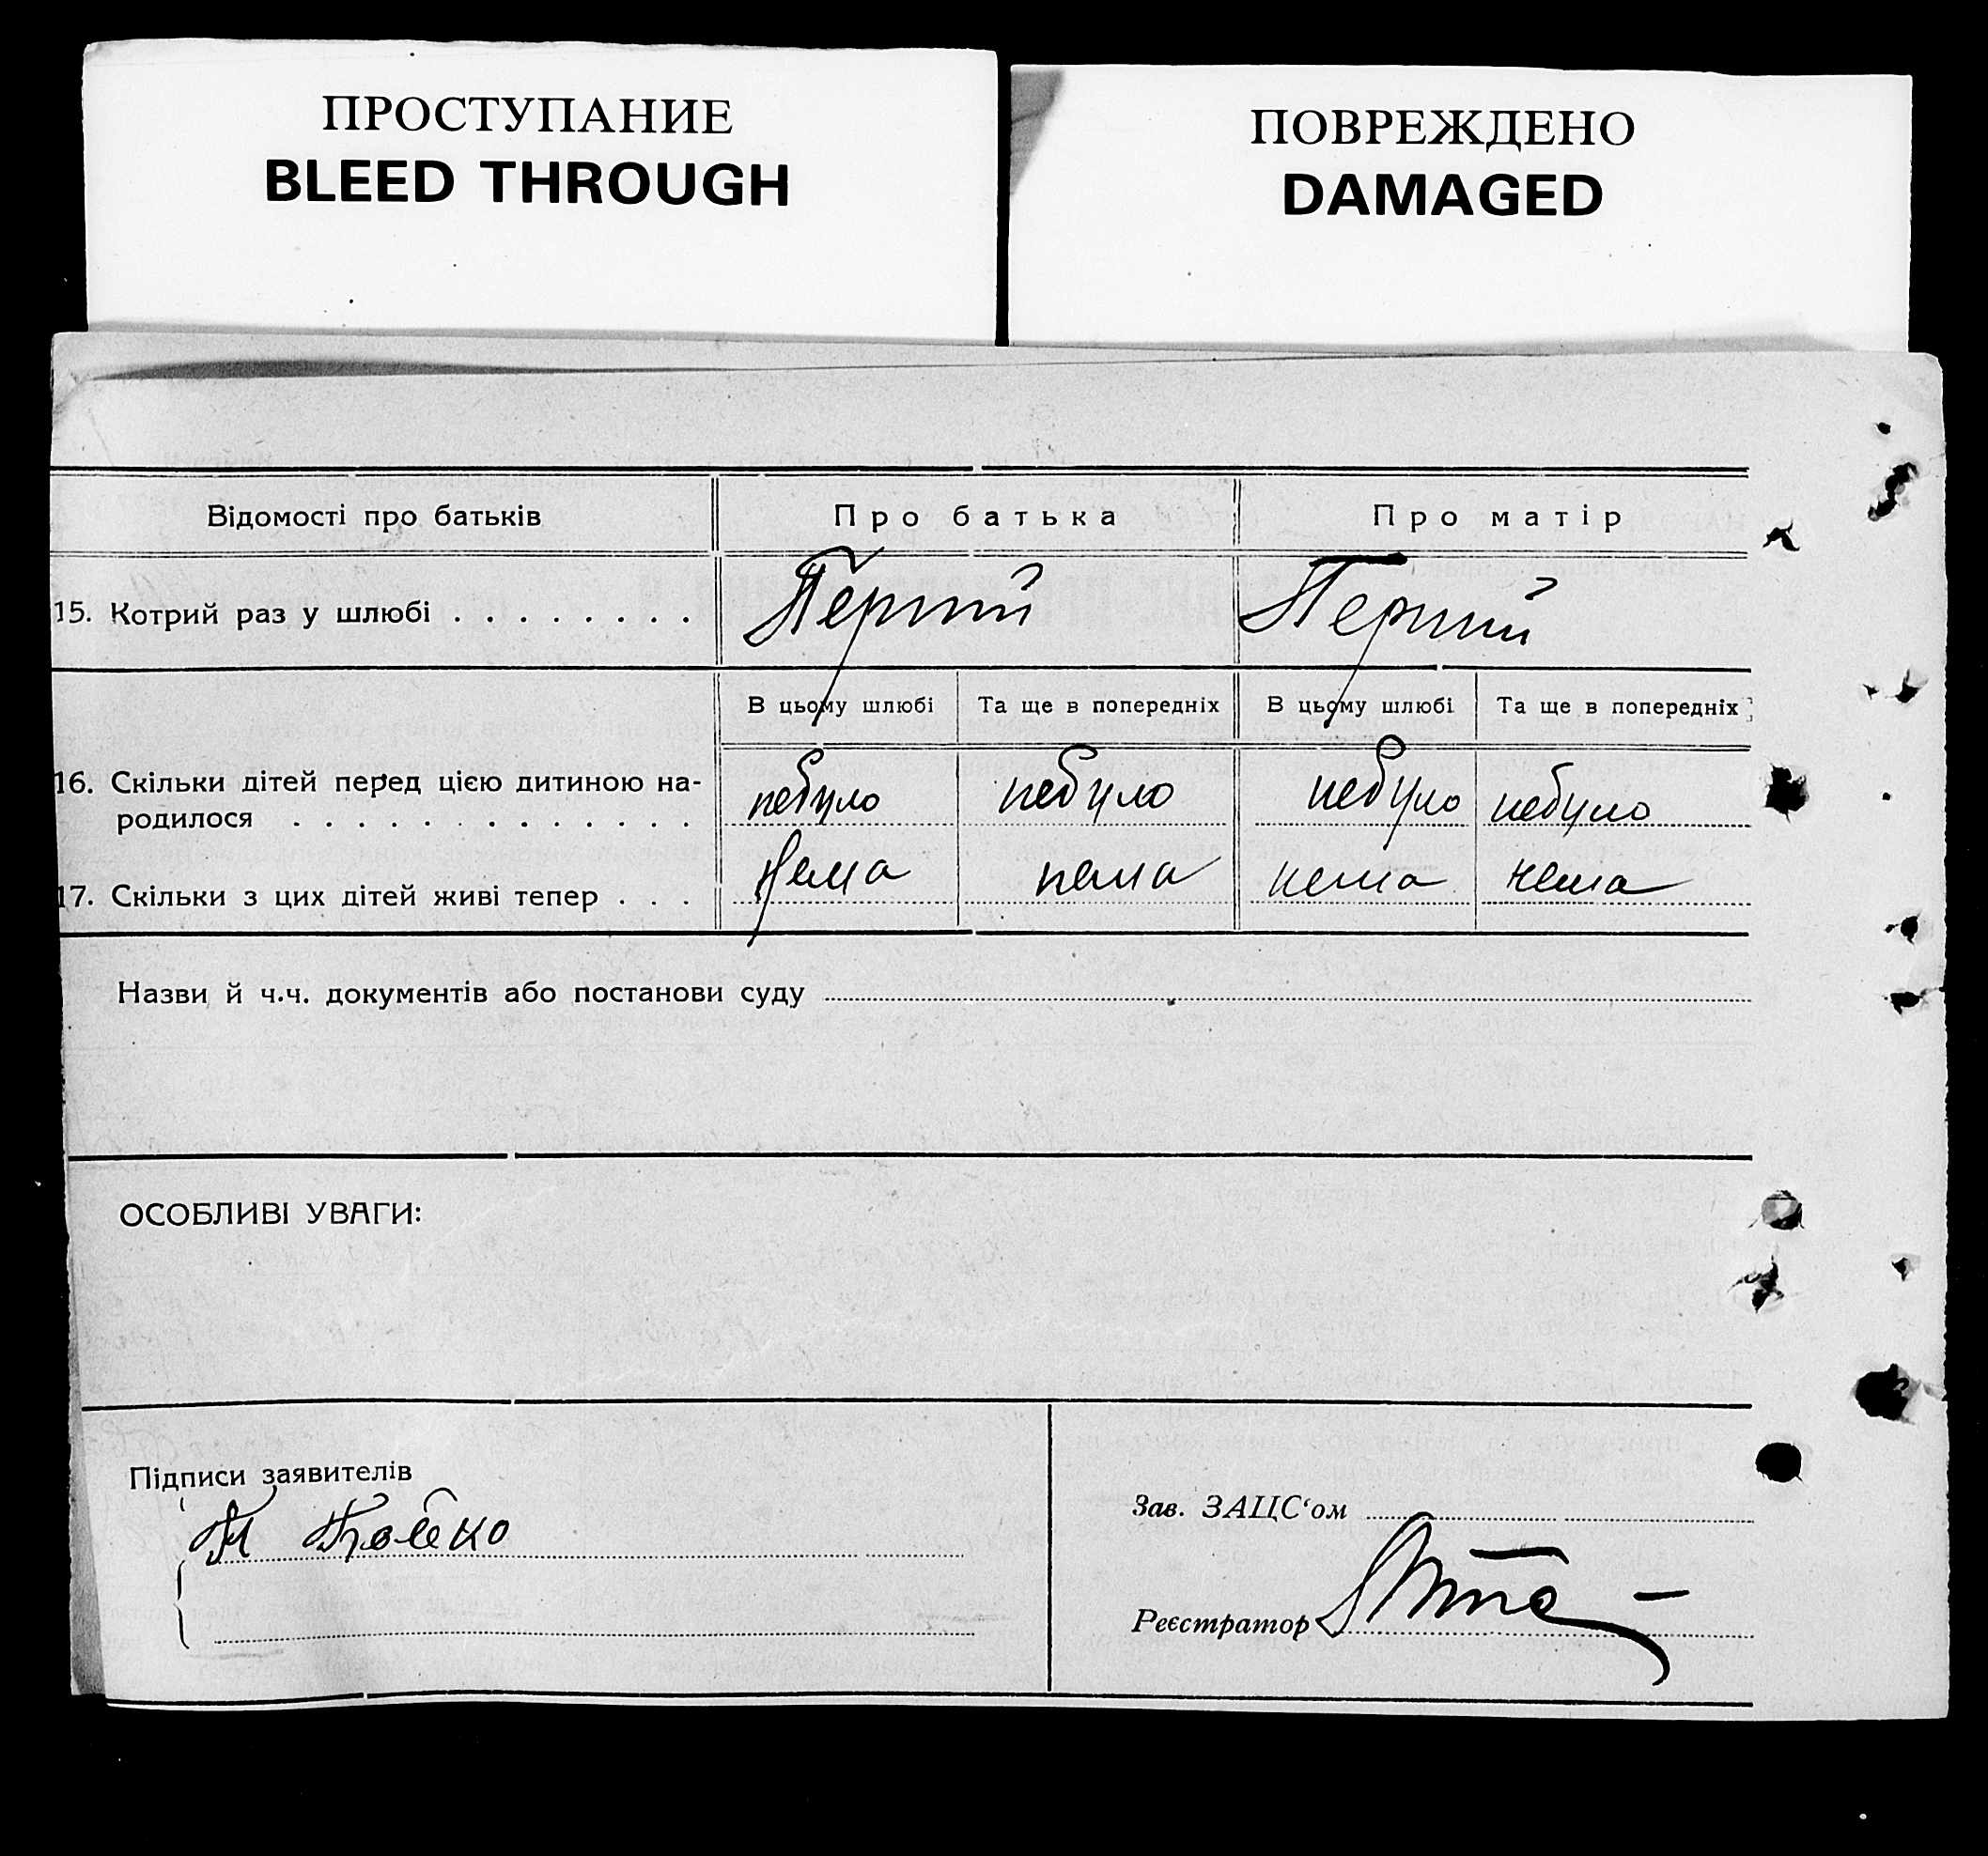 ПРОСТУПАНИЕ
BLEED THROUGH
ПОВРЕЖДЕНО
DAMAGED
Відомості про батьків Про батька Про матір
15. Котрий раз у шлюбі . . . . . . . . Перший Перший
В цьому шлюбі Та ще в попередніх В цьому шлюбі Та ще в попередніх
16. Скільки дітей перед цією дитиною на-
родилося . . . . . . . . . . . . . небуло небуло небуло небуло
17. Скільки з цих дітей живі тепер . . . Нема нема нема нема
Назви й ч.ч. документів або постанови суду
ОСОБЛИВІ УВАГИ:
Підписи заявителів
Бойко
Зав. ЗАЦС‘ом
Реєстратор